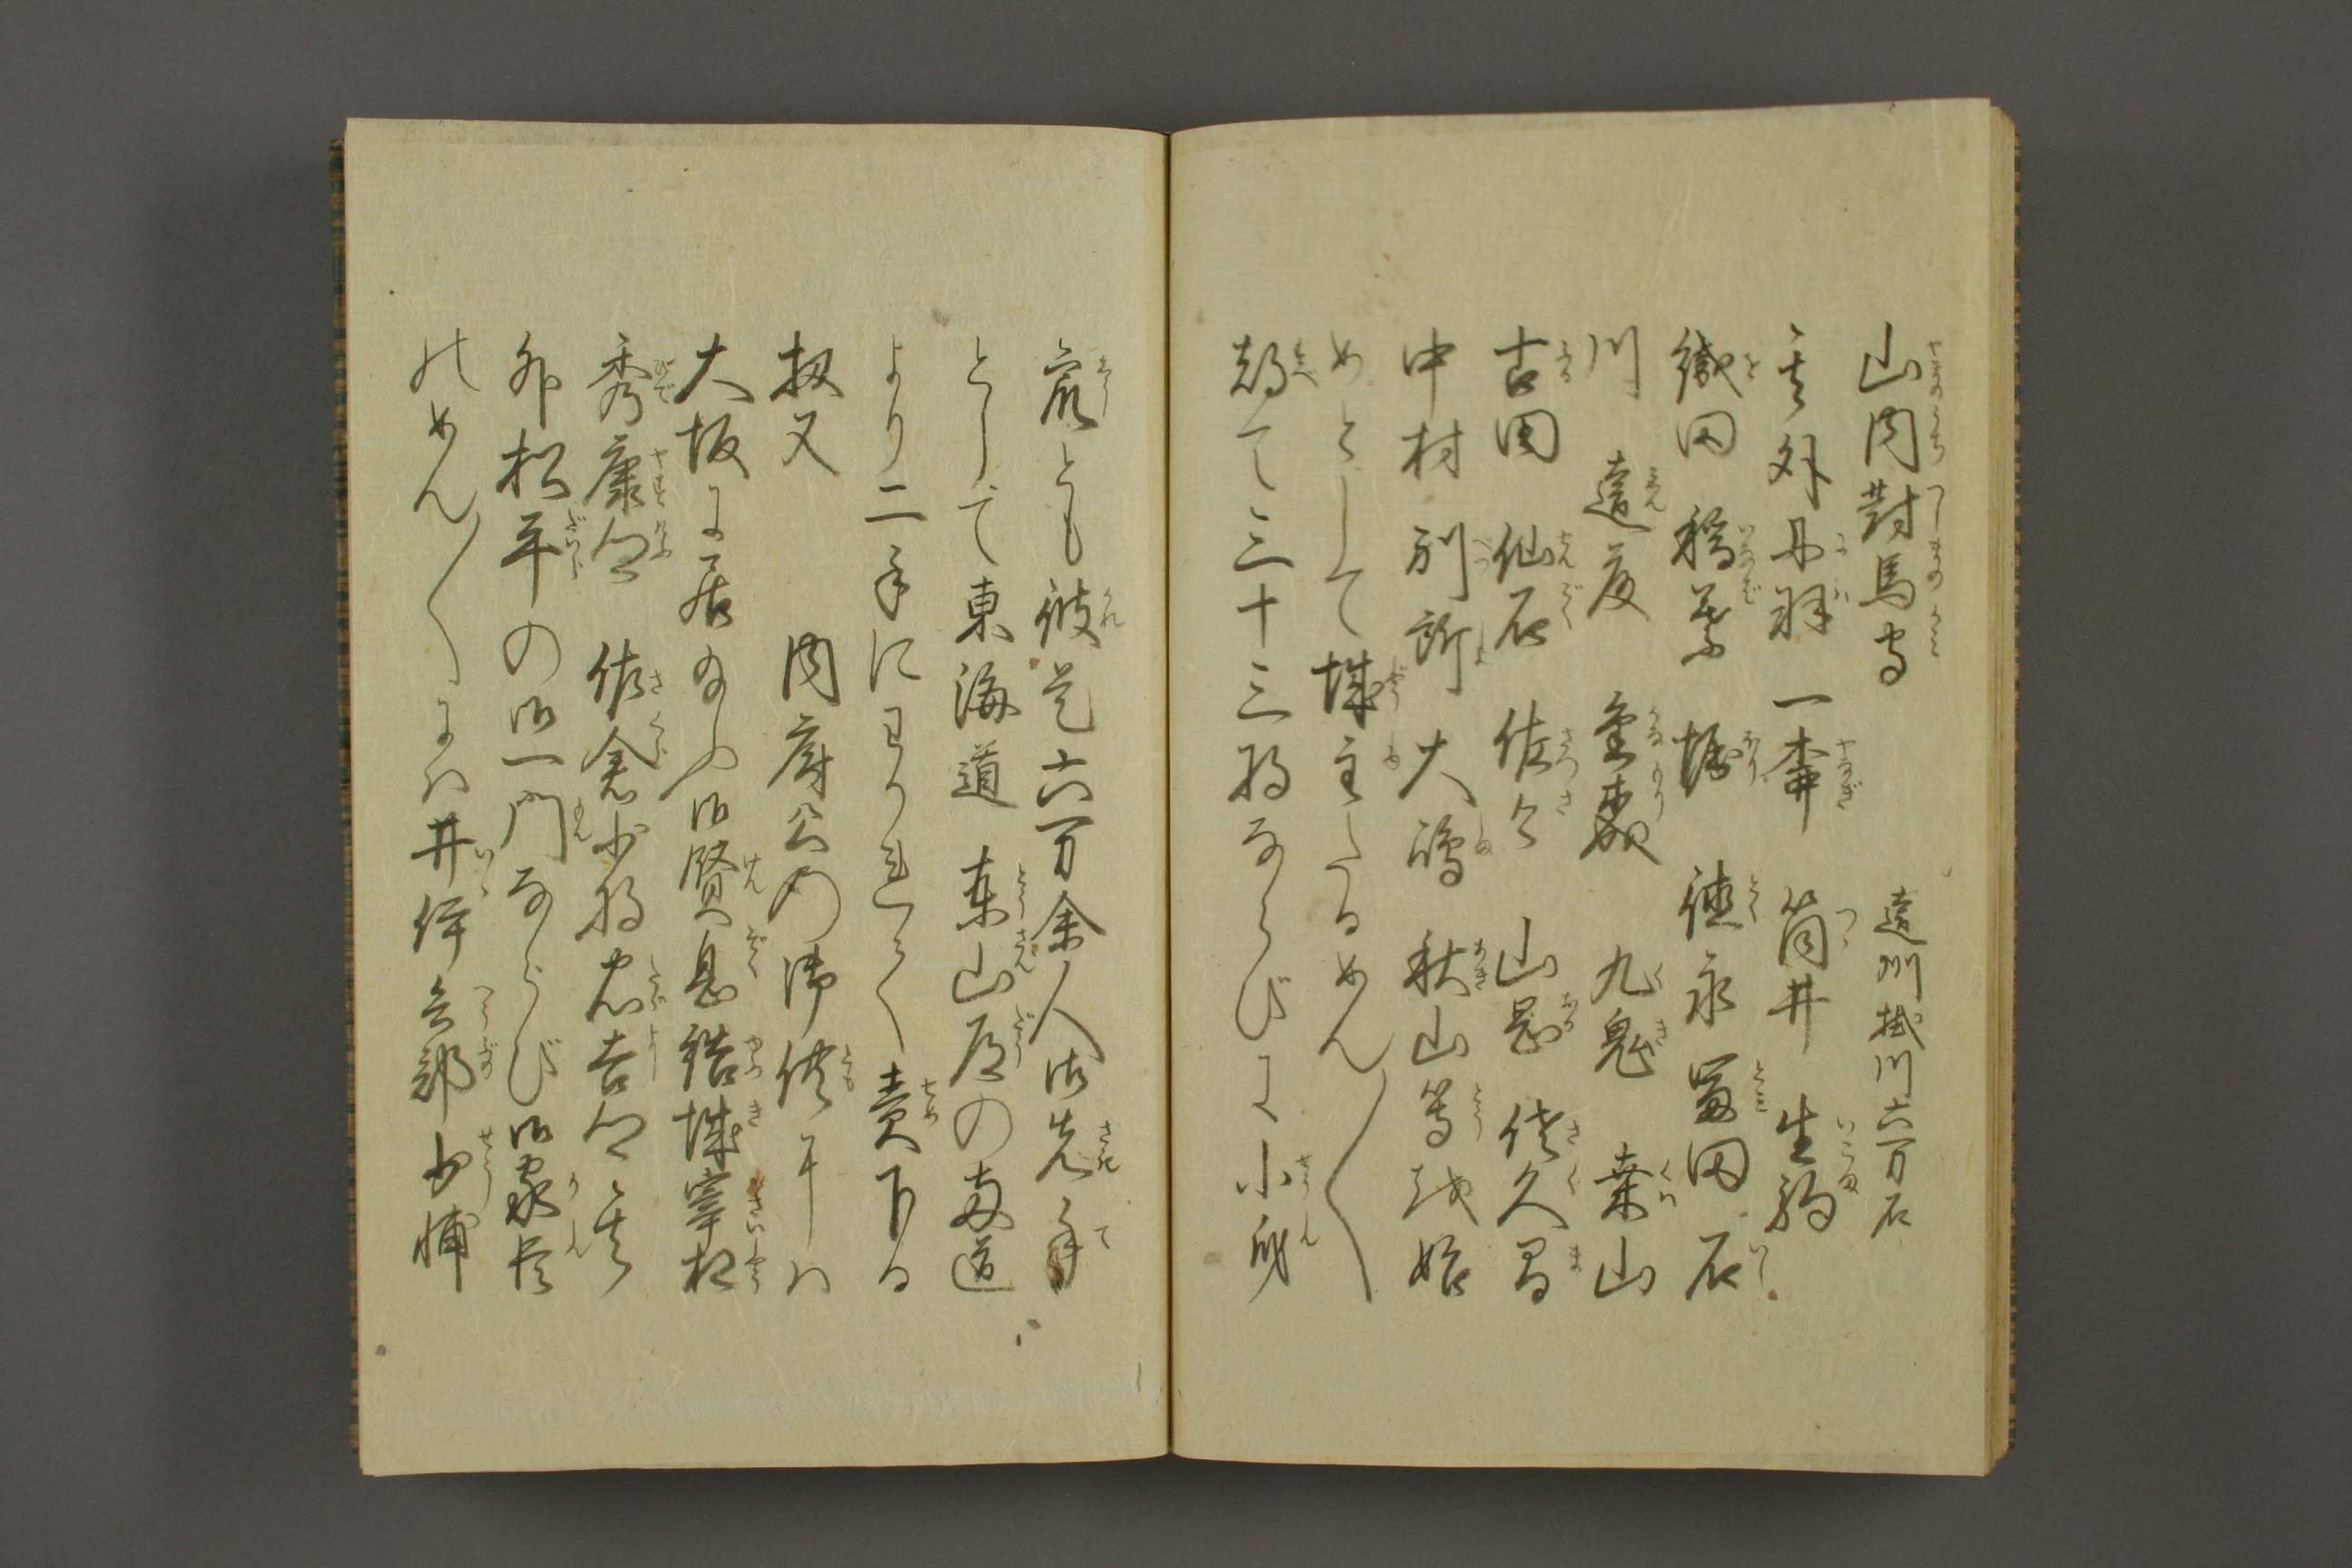 山内對馬守 遠州掛川六万石
其外丹羽 一柳 筒井 生駒
織田 稲葉 堀 徳永 冨田 石
川 遠藤 金森 九鬼 桑山
古田 仙石 佐々 山岡 佐久間
中村 別所 大嶋 秋山等を始
めとして城主たるめん〱
都て三十三将ならびに小身
衆とも彼是六万余人御先手
として東海道 東山道の両道
より二手にわかれて責下る
扨又 内府公の御供には
大坂に居給ふ御賢息結城宰相
秀康卿 佐倉少将忠吉卿其
外松平の御一門ならび御家臣
のめん〱には井伊兵部少輔